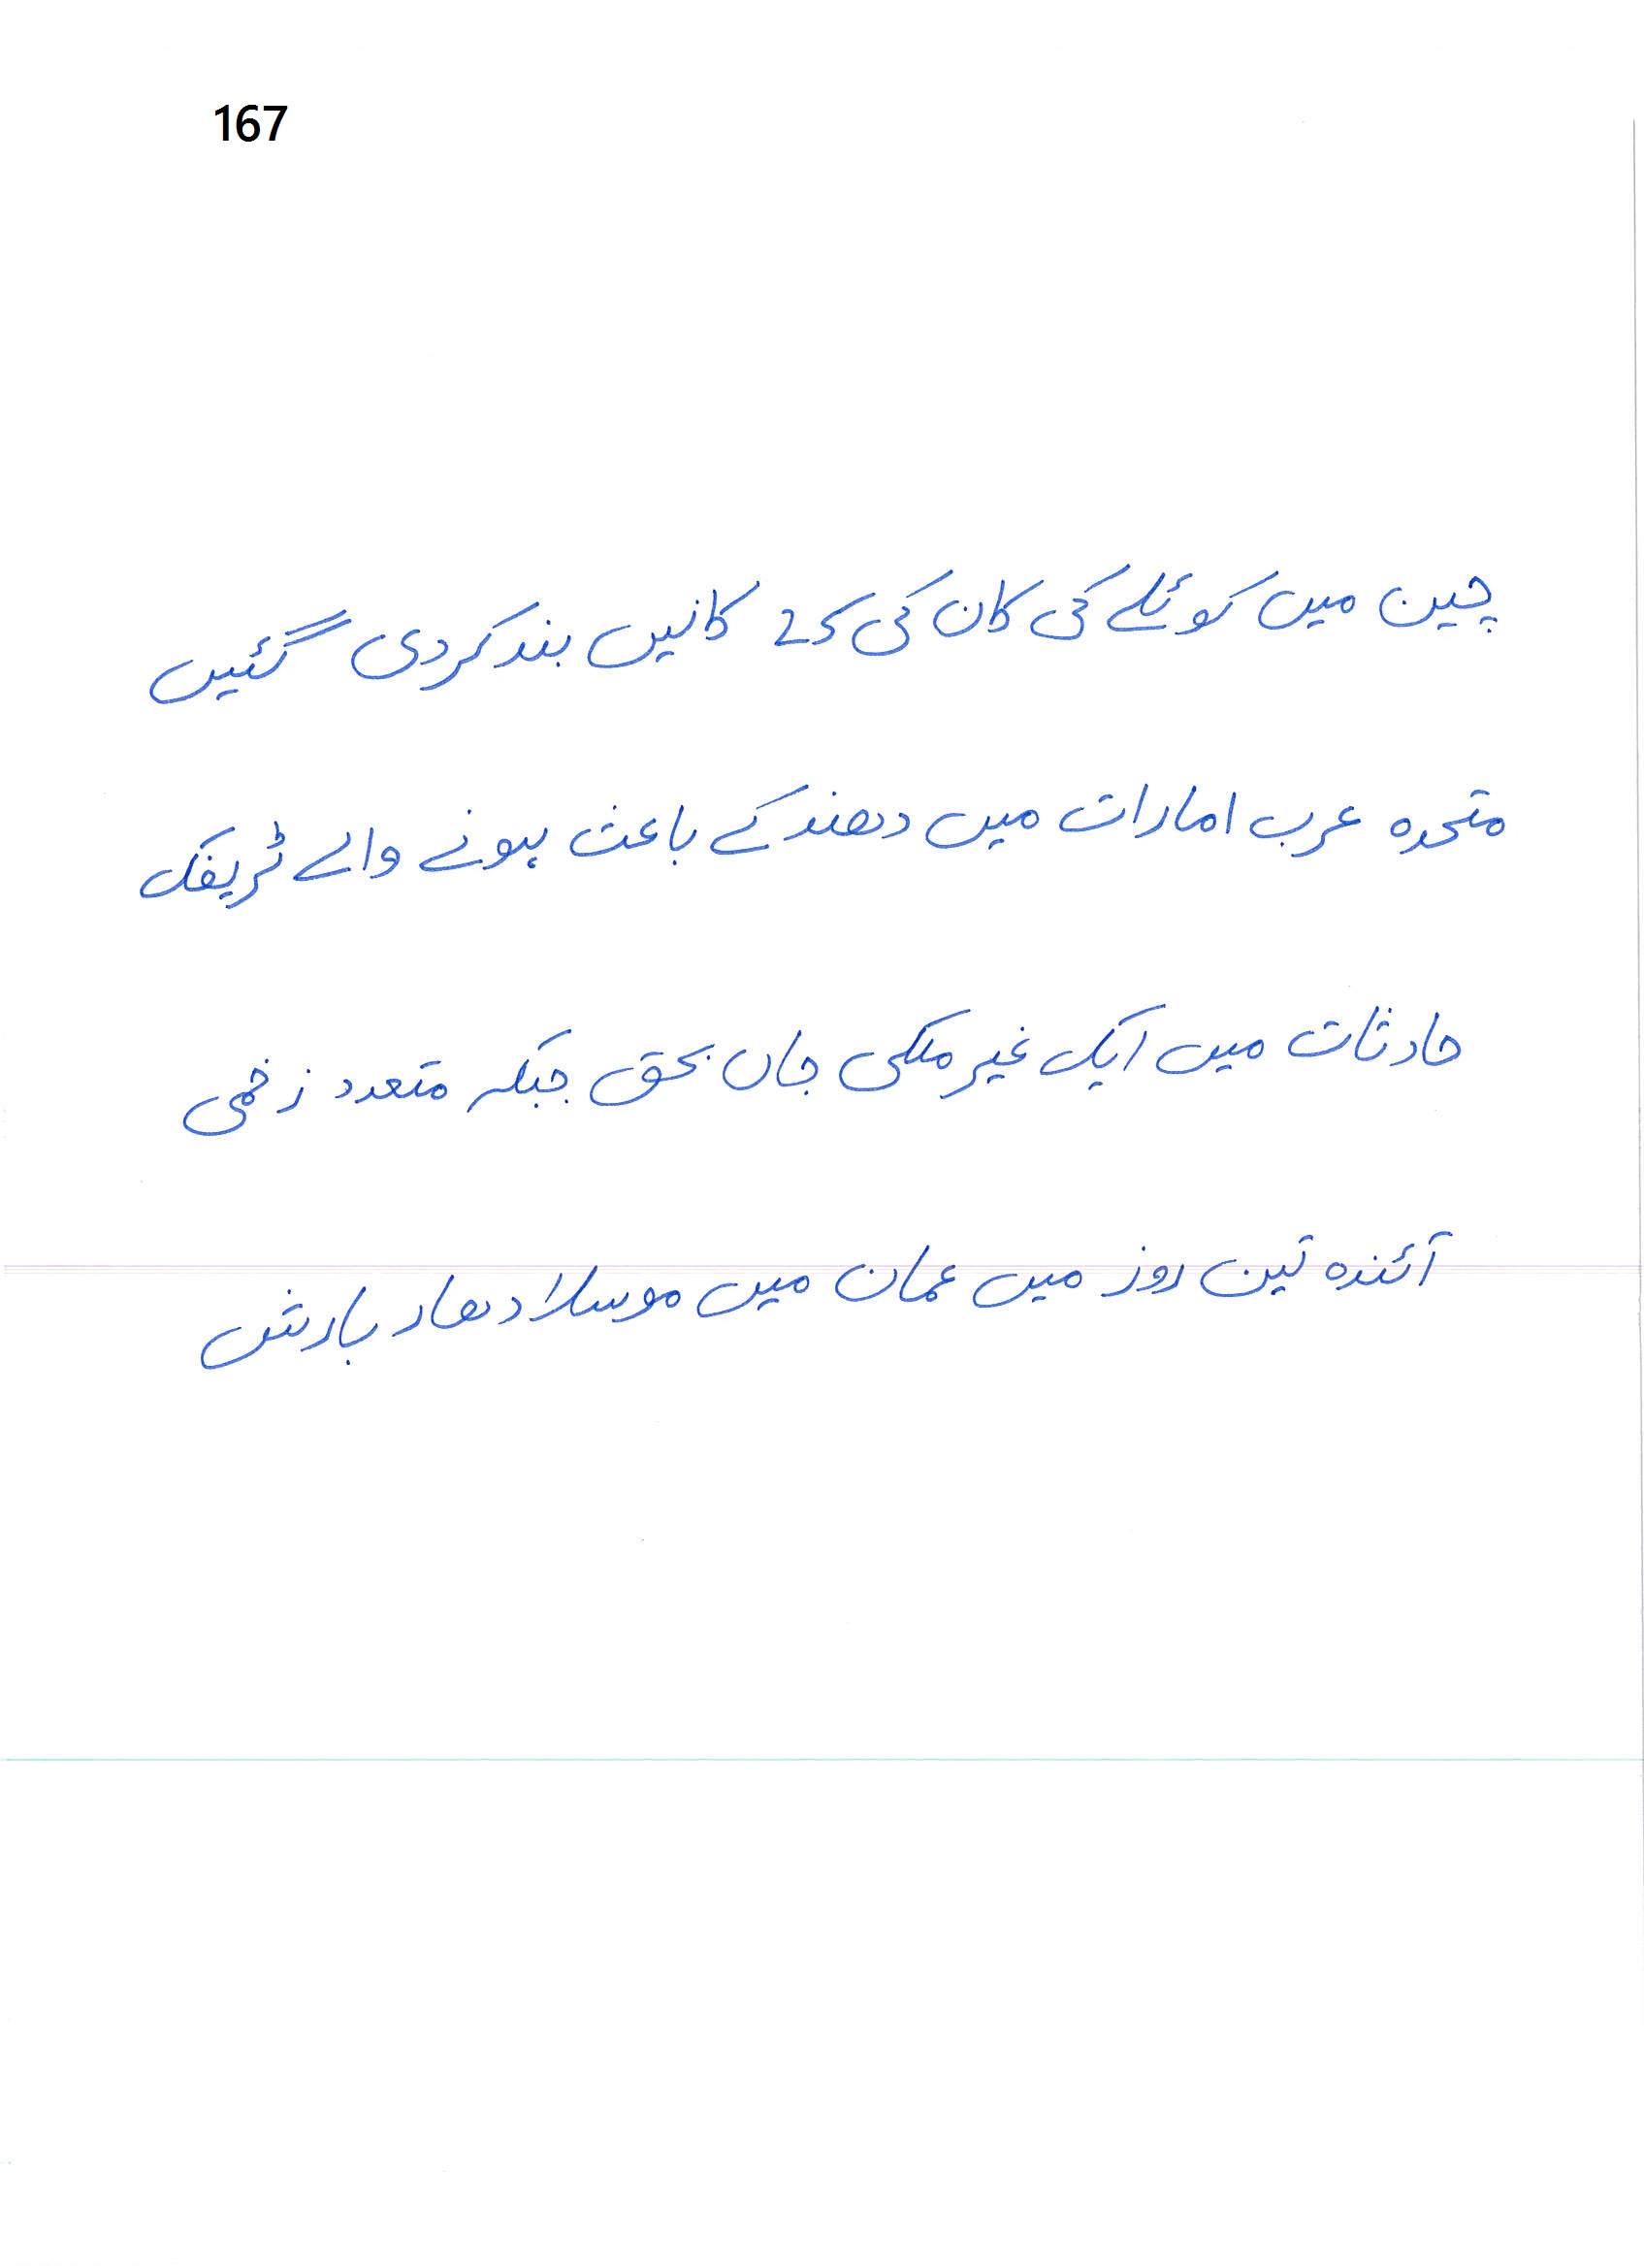 167
چین میں کوئلے کی کان کی 25 کانیں بند کر دی گئیں
متحدہ عرب امارات میں دھند کے باعث ہونے والے ٹریفک
حادثات میں ایک غیر ملکی جاں بحق جبکہ متعدد زخمی
آئندہ تین روز میں عمان میں موسلا دھار بارش